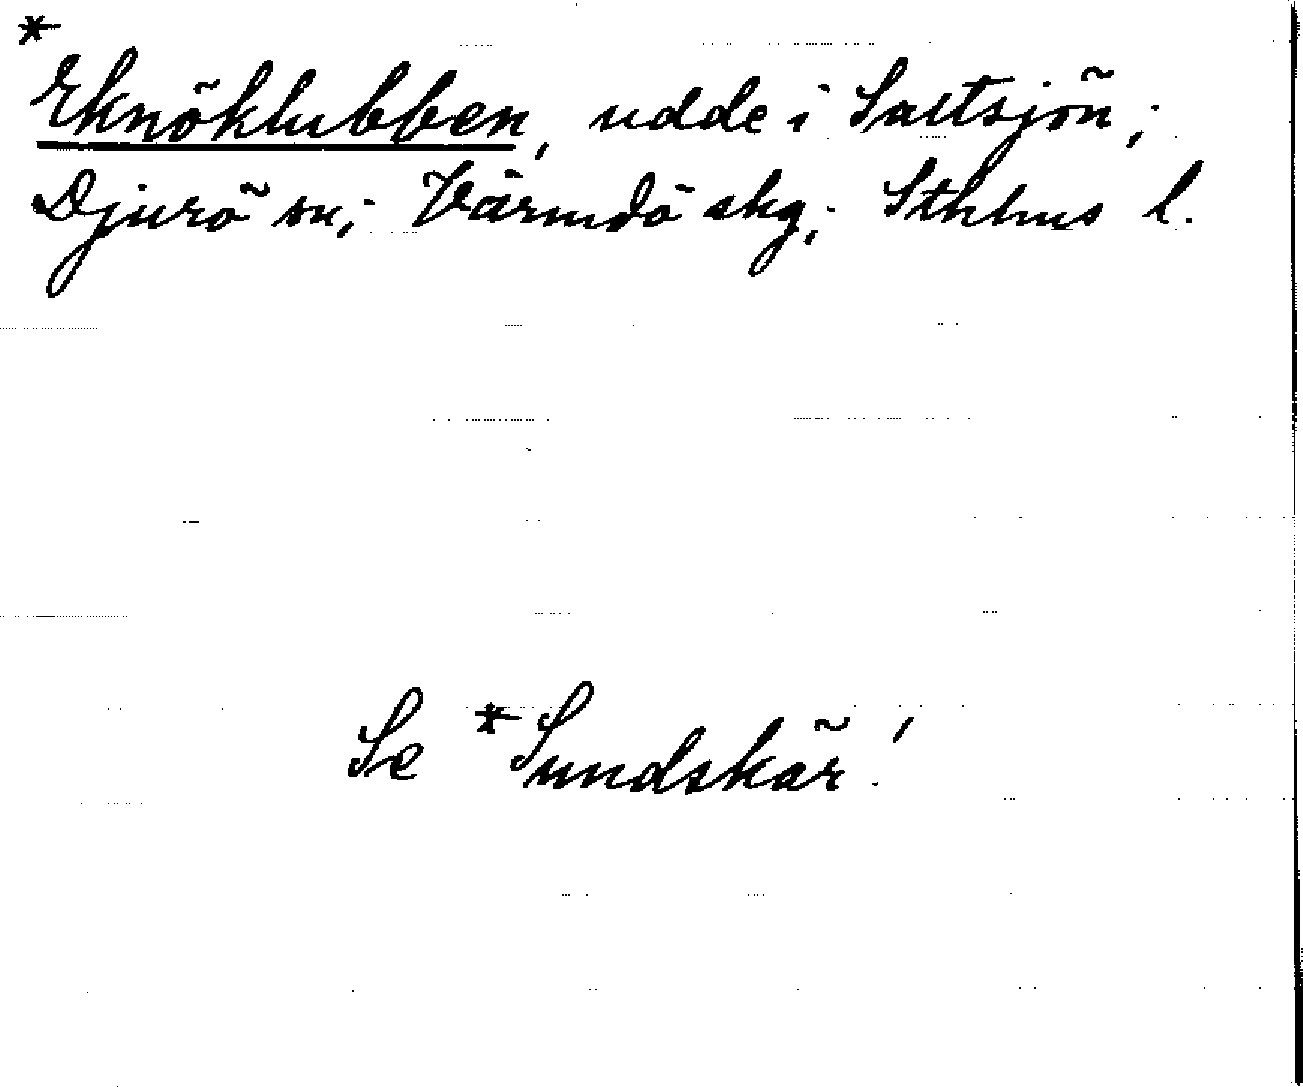 *
Eknöklubben, udde i Saltsjön;
Djurö sn; Värmdö skg; Sthlms l.
Se *Sundskär!